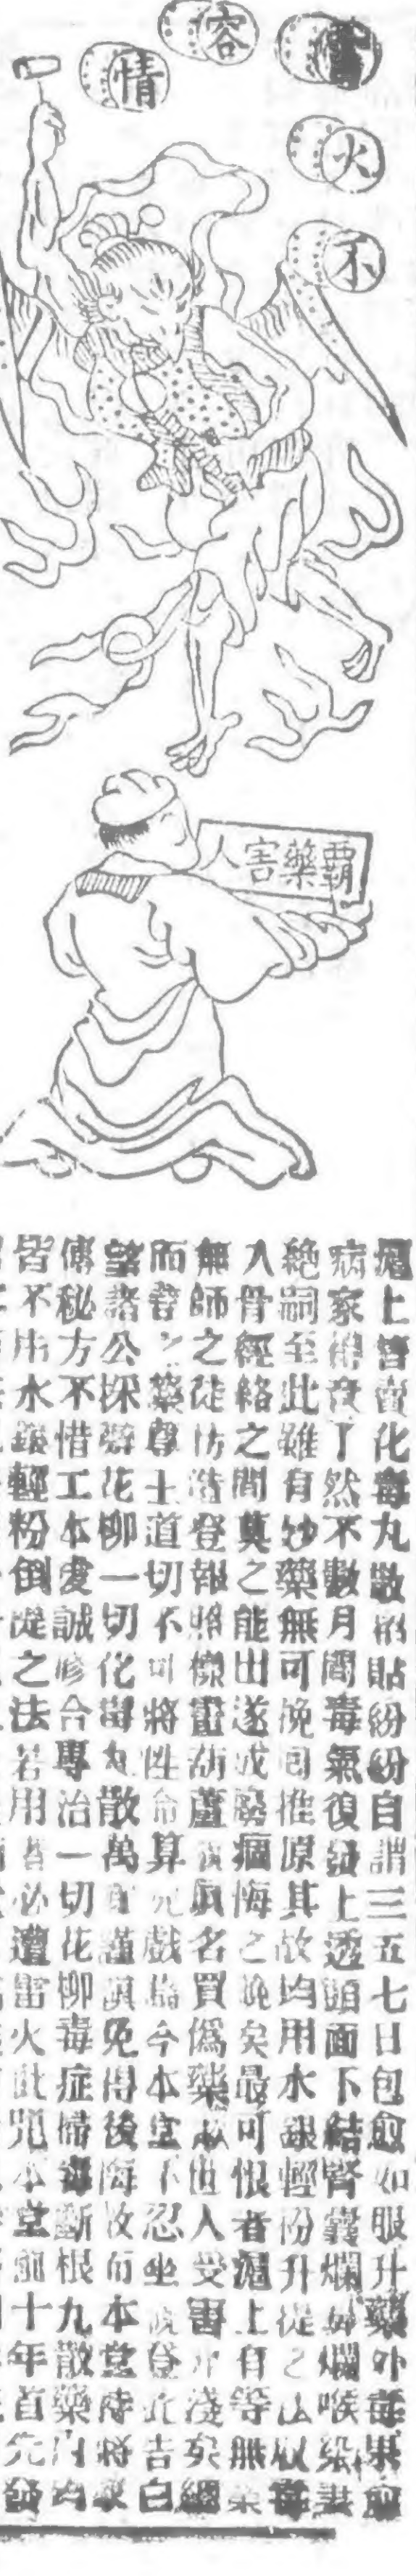 雷火不容情
覇藥害人
滬上售賣化毒丸散招貼紛紛自謂三五七日包愈如服升藥外毒果愈
病家得意了然不數月間毒氣復發上透頭面下結腎囊爛鼻爛喉染妻
絕嗣至此雖有妙藥無可挽回推原其故均用水銀輕粉升提之法收毒
入骨經絡之間莫之能出遂成廢痼悔之晚矣最可恨者滬上有等無業
無師之徒仿造登報照樣畫葫蘆眞名買僞藥世人受害淺矣
而登之藥尊士道切不可將性命算兒戲焉今本堂不忍坐視登此告白
望諸公深辨花柳一切化毒丸散萬宜謹愼免得後悔故而本堂特將家
傳秘方不惜工本虔誠修合專治一切花柳毒症掃毒斷根丸散藥內均
皆不用水銀輕粉倒提之法若用者必遭雷火此咒本堂前十年首先發